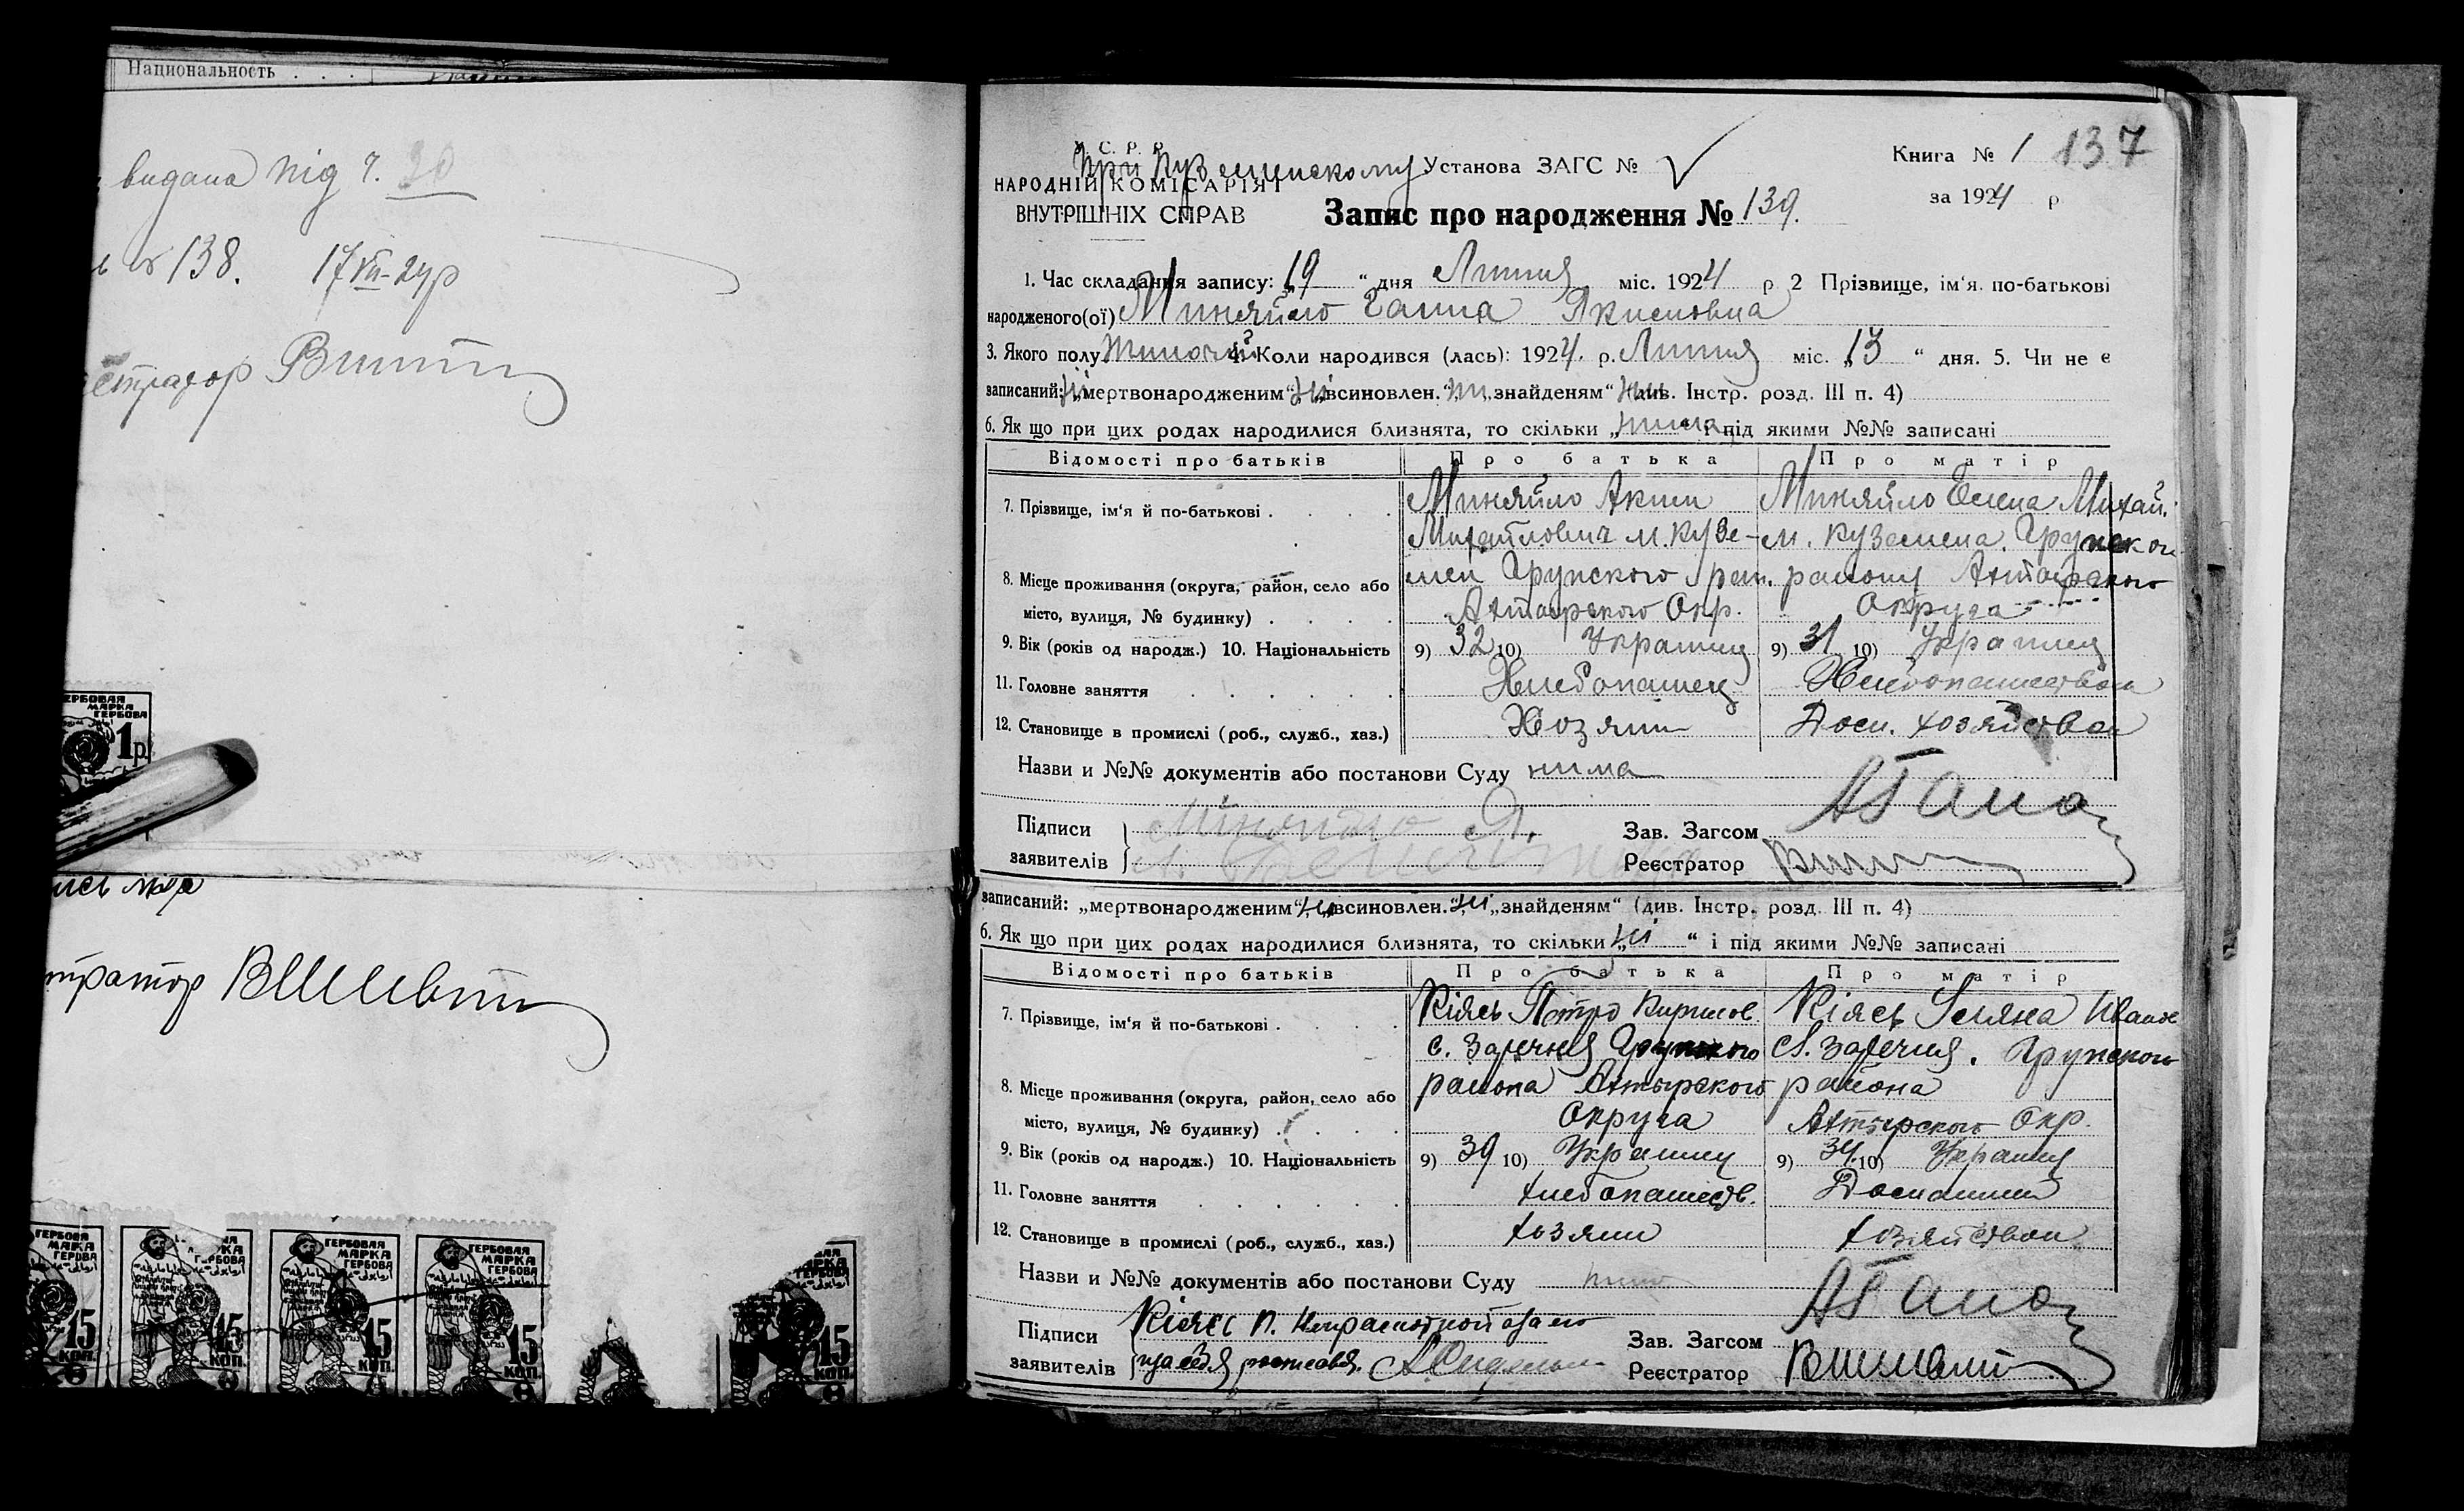 Национальность
видана під ч. 30
138. 17 VII-24р
У. С. Р. Р.
При Куземинскому Установа ЗАГС №
Книга № 1 137
НАРОДНІЙ КОМІСАРІЯТ
ВНУТРІШНІХ СПРАВ
за 1924 р
Запис про народження № 139.
1. Час складання запису: „19 “ дня Липня міс. 1924 р 2 Прізвище, ім‘я. по-батькові
народженого(ої) Миняйло Ганна Якимовна
3. Якого полу Жиночий 4. Коли народився (лась): 1924. р. Липня міс. „13 “ дня. 5. Чи не є
записаний: ні „мертвонародженим“, ні „всиновлен.“, ни „знайденям“ (див. Інстр. розд. III п. 4)
6. Як що при цих родах народилися близнята, то скільки „нима“ і під якими №№ записані
Відомості про батьків Про батька Про матір
7. Прізвище, ім‘я й по-батькові . . . . Миняйло Аким Миняйло Елена Михай.
Михайлович м. Кузе- м. Куземена. Грунскои
8. Місце проживання (округа, район, село або мен Грунского рай. району Ахтырского
місто, вулиця, № будинку) . . . . Ахтырского Окр. Округа
9. Вік (років од народж.) 10. Національність 9) 32 10) Украинц 9) 31 10) Украинц
11. Головне заняття . . . . . . Хлебопашец Хлебопашество
12. Становище в промислі (роб., служб., хаз.) Хозяин Дом. хозяйством
Назви и №№ документів або постанови Суду нима
Підписи
заявителів
Миняйло Я.
Зав. Загсом
Реєстратор
записаний: „мертвонародженим“, ні „всиновлен.“, ні „знайденям“ (див. Інстр. розд. III п. 4)
6. Як що при цих родах народилися близнята, то скільки „ні “ і під якими №№ записані
Відомості про батьків Про батька Про матір
7. Прізвище, ім‘я й по-батькові . . . . Кіясь Петро Кирилов. Кіясь Уляна Иванов
с. Заречня Грунского С. Заречня. Грунского
8. Місце проживання (округа, район, село або района Ахтырского района
місто, вулиця, № будинку) . . . . Округа Ахтырского Окр.
9. Вік (років од народж.) 10. Національність 9) 39 10) Украинц 9) 34 10) Украинц
11. Головне заняття . . . . . . хлебопашеств. Домашним
12. Становище в промислі (роб., служб., хаз.) хозяин хозяйством
Назви и №№ документів або постанови Суду нима
Підписи
заявителів
Кіяс П. Неграмотной а за его
и за себя росписався.
Зав. Загсом
Реєстратор
ГЕРБОВАЯ МАРКА ГЕРБОВА
1 р.
ГЕРБОВАЯ МАРКА ГЕРБОВА
15 КОП.
ГЕРБОВАЯ МАРКА ГЕРБОВА
15 КОП.
ГЕРБОВАЯ МАРКА ГЕРБОВА
15 КОП.
15 КОП.